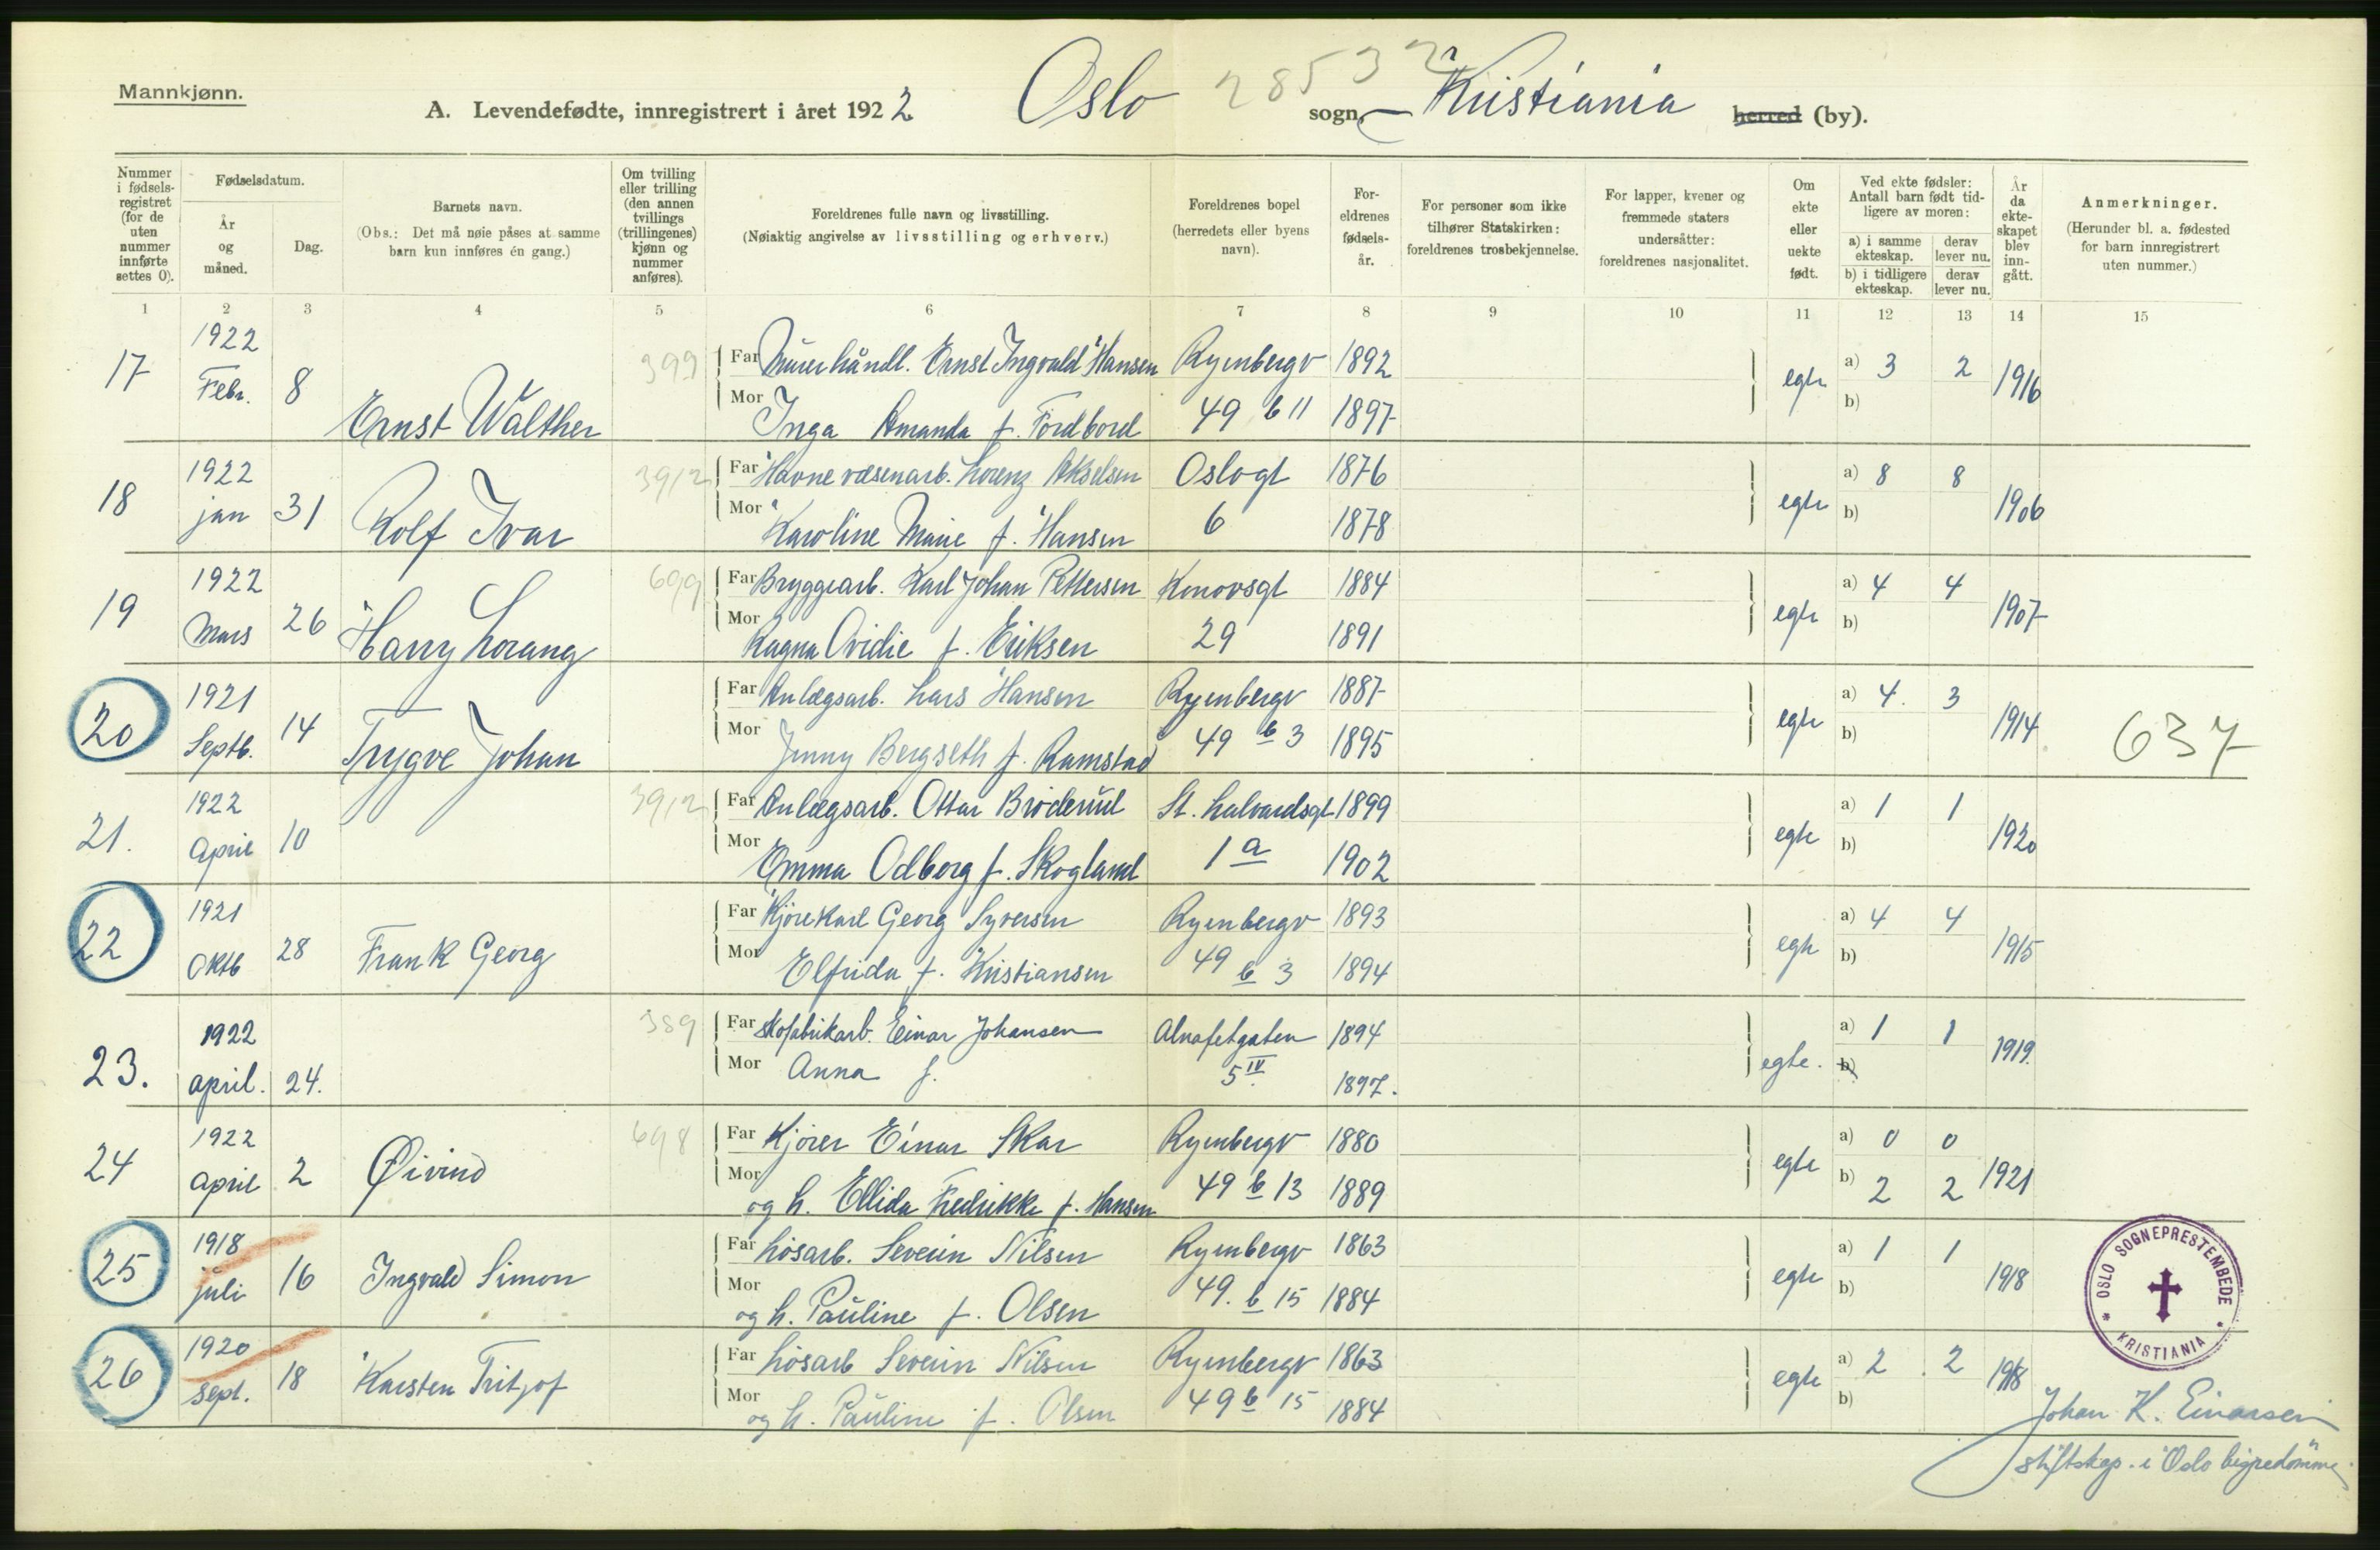 Mannkjønn.
A. Levendefødte, innregistrert i året 1922 Oslo sogn, Kristiania herred (by).
28532
Nummer i fødsels-registret (for de uten nummer innførte settes 0).
Fødselsdatum.
År og måned.
Dag.
Barnets navn.
(Obs.: Det må nøie påses at samme barn kun innføres én gang.)
Om tvilling eller trilling (den annen tvillings (trillingenes) kjønn og nummer anføres).
Foreldrenes fulle navn og livsstilling.
(Nøiaktig angivelse av livsstilling og erhverv.)
Foreldrenes bopel (herredets eller byens navn).
For-eldrenes fødsels-år.
For personer som ikke tilhører Statskirken: foreldrenes trosbekjennelse.
For lapper, kvener og fremmede staters undersåtter: foreldrenes nasjonalitet.
Om ekte eller uekte født.
Ved ekte fødsler: Antall barn født tid-ligere av moren:
a) i samme ekteskap.
derav lever nu.
b) i tidligere ekteskap.
derav lever nu.
År da ekte-skapet blev inn-gått.
Anmerkninger.
(Herunder bl. a. fødested for barn innregistrert uten nummer.)
1 2 3 4 5 6 7 8 9 10 11 12 13 14 15
17 1922 Febr. 8 Ernst Walther 399
Far Murerhåndl. Ernst Ingvald Hansen Ryenbergv 1892 egte a) 3 2 1916
Mor Inga Amanda f. Fordbord 49 b 11 1897 b)
18 1922 jan 31 Rolf Ivar 3912
Far Havnevæsenarb. Lorenz Akselsen Oslogt 1876 egte a) 8 8 1906
Mor Karoline Marie f. Hansen 6 1878 b)
19 1922 Mars 26 Harry Lorang 699
Far Bryggearb. Karl Johan Pettersen Konovsgt 1884 egte a) 4 4 1907
Mor Ragna Ovidie f. Eriksen 29 1891 b)
20 1921 Septb. 14 Trygve Johan
Far Anlægsarb. Lars Hansen Ryenbergv 1887 egte a) 4. 3 1914 637
Mor Jenny Bergseth f. Ramstad 49 b 3 1895 b)
21. 1922 April 10 3912
Far Anlægsarb. Ottar Broderud St. Halvardsgt 1899 egte a) 1 1 1920
Mor Emma Odborg f. Skogland 1 a 1902 b)
22 1921 Oktb 28 Frank Georg
Far Kjørekarl Georg Syversen Ryenbergv 1893 egte a) 4 4 1915
Mor Elfrida f. Kristiansen 49 b 3 1894 b)
23. 1922 april. 24. 389
Far Skofabrikarb. Einar Johansen Alnafetgaten 1894 egte. a) 1 1 1919.
Mor Anna f. 5 IV. 1897. b)
24 1922 April 2 Øivind 698
Far Kjører Einar Skar Ryenbergv 1880 egte a) 0 0 1921
Mor og h. Ellida Fredrikke f. Hansen 49 b 13 1889 b) 2 2
25 1918 juli 16 Ingvald Simon
Far Løsarb. Severin Nilsen Ryenbergv 1863 egte a) 1 1 1918
Mor og h. Pauline f. Olsen 49. b 15 1884 b)
26 1920 sept. 18 Karsten Fritjof
Far Løsarb Severin Nilsen Ryenbergv 1863 egte a) 2 . 2 1918
Mor og h. Pauline f. Olsen 49 b 15 1884 b)
* OSLO SOGNEPRESTEMBEDE * KRISTIANIA
Johan K. Einarsen
stiftskap. i Oslo bispedømme.